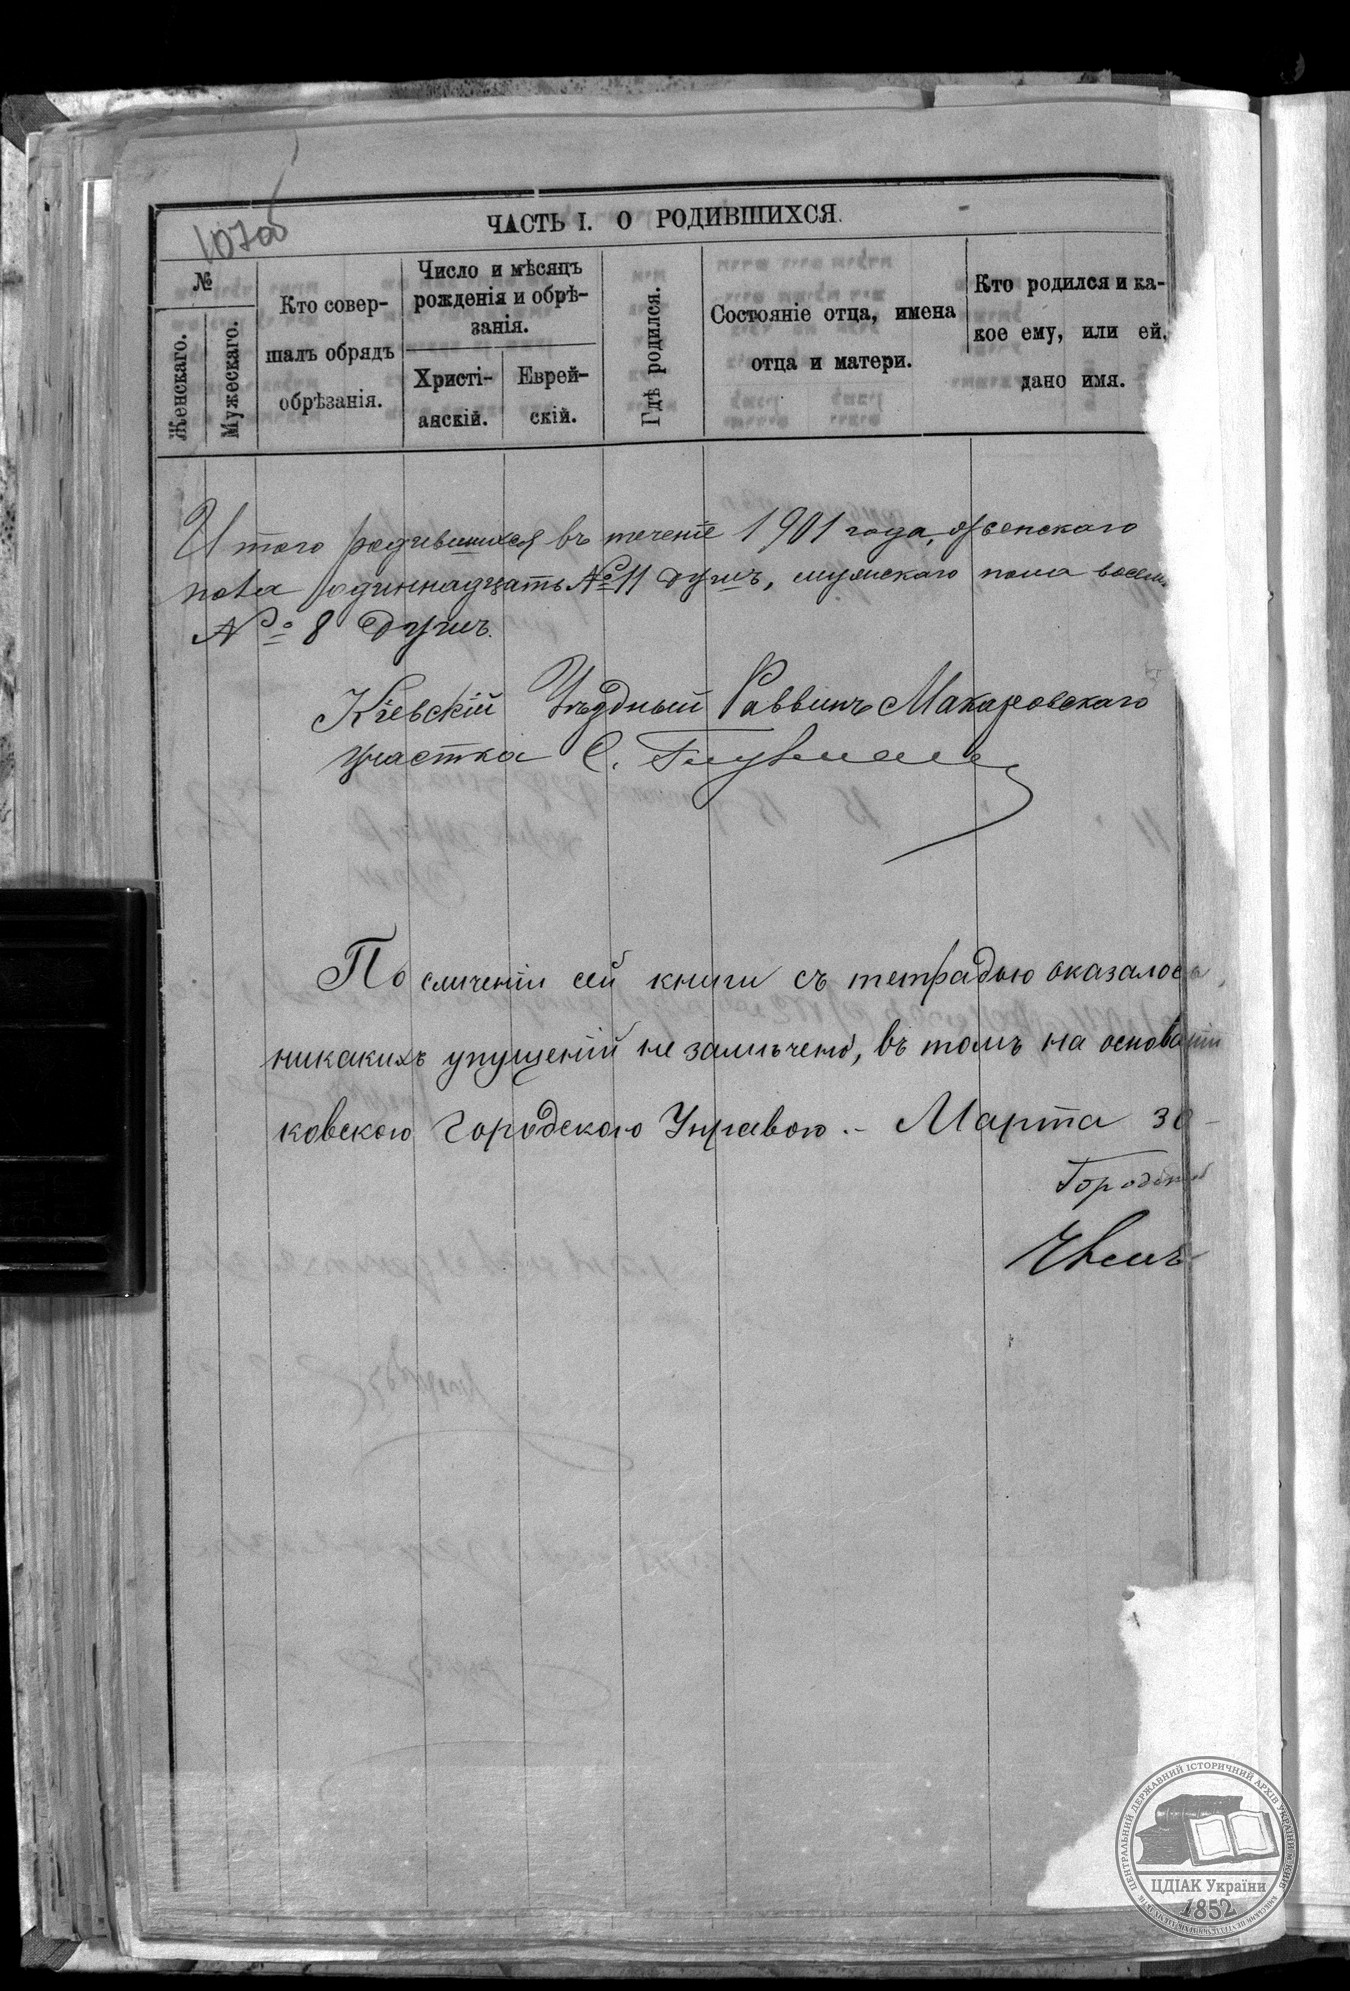 107об
ЧАСТЬ I. О РОДИВШИХСЯ.
№
Женскаго.
Мужескаго.
Кто совер-
шалъ обрядъ
обрѣзанія.
Число и мѣсяцъ
рожденія и обрѣ-
занія.
Христі-
анскій.
Еврей-
скій.
Гдѣ родился.
Состояніе отца, имена
отца и матери.
Кто родился и ка-
кое ему, или ей,
дано имя.
Итого родившихся въ теченіе 1901 года, женскаго
пола одиннадцать №11 душъ, мужскаго пола восемь
№ 8 душъ.
Кіевскій Уѣздный Раввинъ Макаровскаго
участка С.
По сличеніи сей книги съ тетрадью оказалось,
никакихъ упущеній не замѣчено, въ томъ на основаніи
ковскою Городскою Управою. – Марта 30
Членъ
ЦЕНТРАЛЬНИЙ ДЕРЖАВНИЙ ІСТОРИЧНИЙ АРХІВ УКРАЇНИ м. КИЇВ
ЦДІАК України
1852